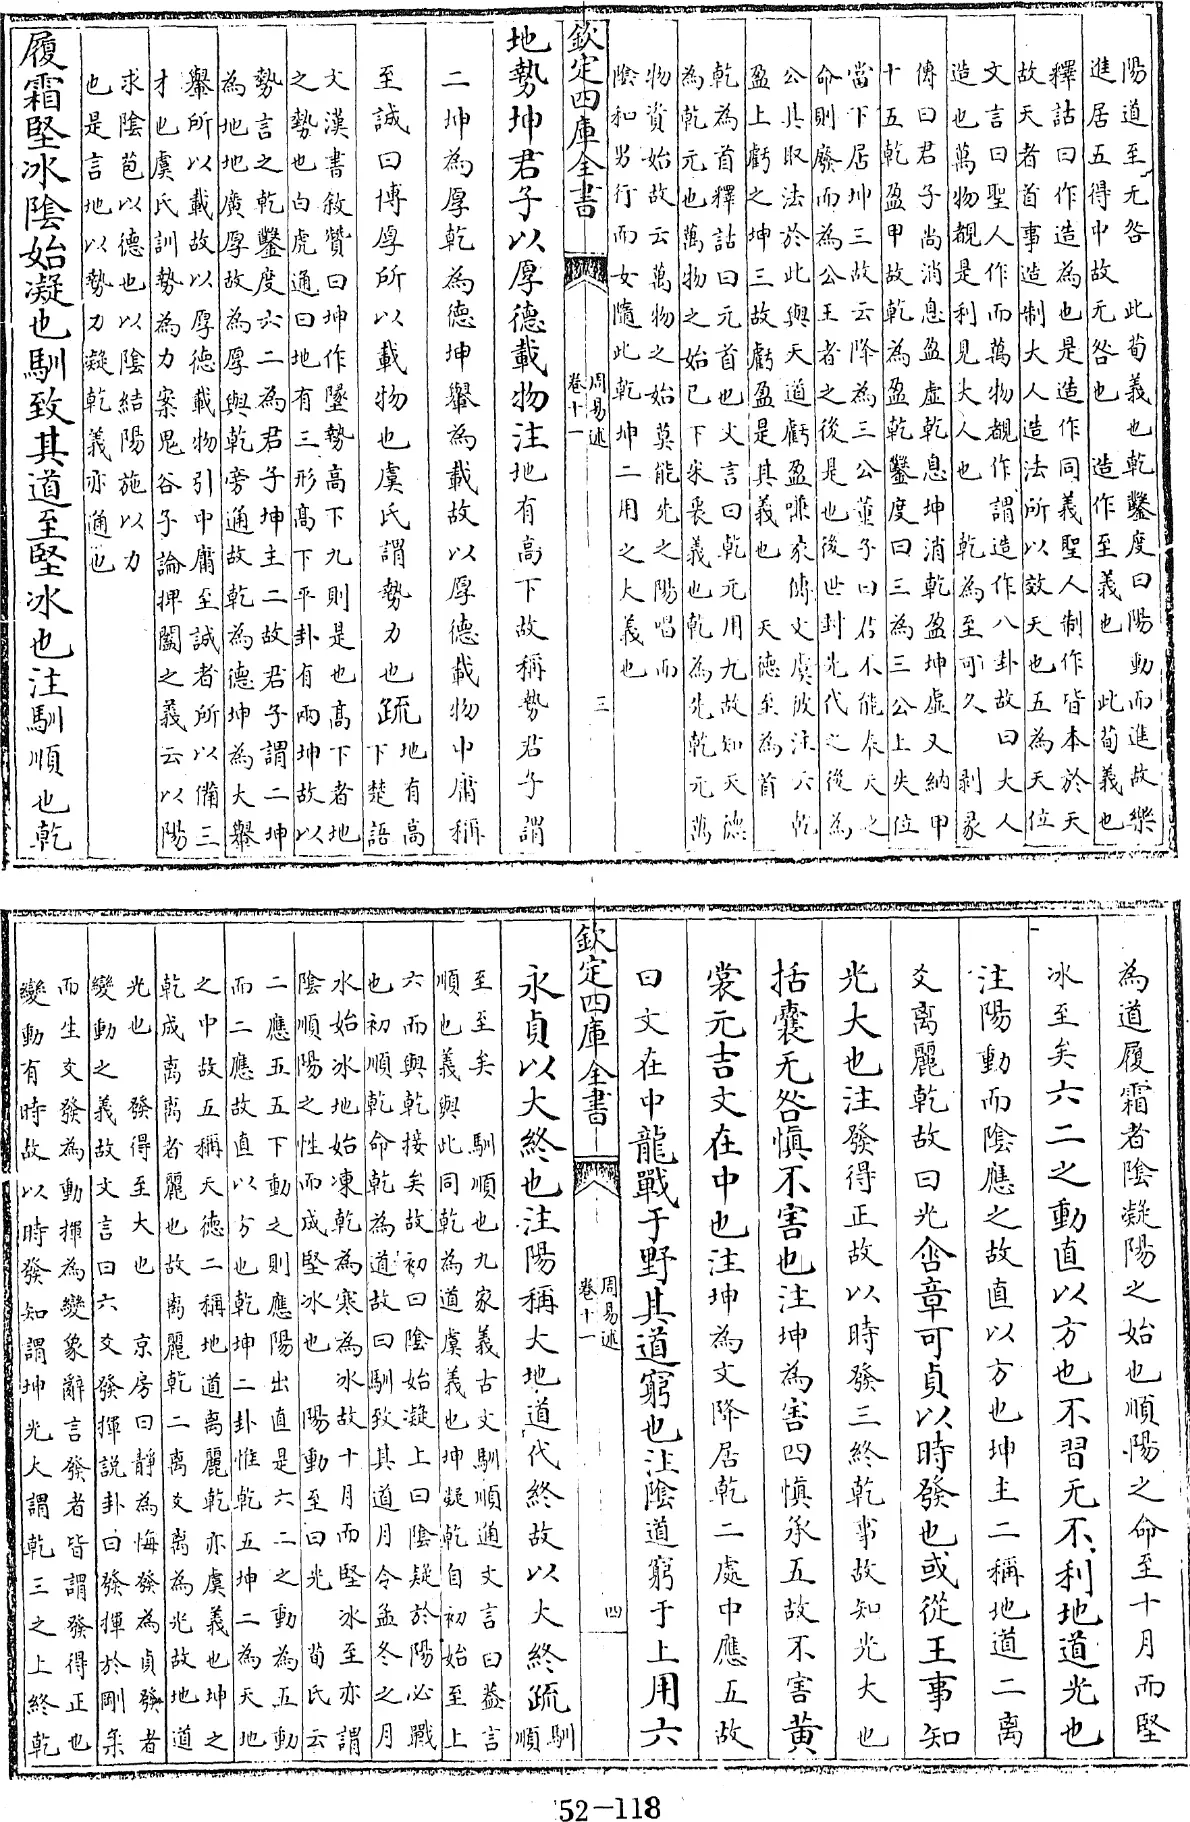 陽道至无咎　此荀義也乾鑿度曰陽動而進故樂
進居五得中故无咎也　造作至義也　此荀義也
釋詁曰作造為也是造作同義聖人制作皆本於天
故天者首事造制大人造法所以效天也五為天位
文言曰聖人作而萬物覩作謂造作八卦故曰大人
造也萬物覩是利見大人也　乾為至可久　剥彖
傳曰君子尚消息盈虛乾息坤消乾盈坤虛又納甲
十五乾盈甲故乾為盈乾鑿度曰三為三公上失位
當下居坤三故云降為三公董子曰君不能奉天之
命則廢而為公王者之後是也後世封先代之後為
公其取法於此與天道虧盈嗛彖傳文虞彼注云乾
盈上虧之坤三故虧盈是其義也　天德至為首
乾為首釋詁曰元首也文言曰乾元用九故知天德
為乾元也萬物之始已下宋衷義也乾為先乾元萬
物資始故云萬物之始莫能先之陽唱而
陰和男行而女隨此乾坤二用之大義也
欽定四庫全書
周易述
卷十一
三
地勢坤君子以厚德載物注地有高下故稱勢君子謂
二坤為厚乾為德坤轝為載故以厚德載物中庸稱
至誠曰博厚所以載物也虞氏謂勢力也疏地有高
下楚語
文漢書敍贊曰坤作墜勢高下九則是也高下者地
之勢也白虎通曰地有三形高下平卦有兩坤故以
勢言之乾鑿度六二為君子坤主二故君子謂二坤
為地地廣厚故為厚與乾旁通故乾為德坤為大轝
轝所以載故以厚德載物引中庸至誠者所以備三
才也虞氏訓勢為力案鬼谷子論捭闔之義云以陽
求陰苞以德也以陰結陽施以力
也是言地以勢力凝乾義亦通也
履霜堅冰陰始凝也馴致其道至堅冰也注馴順也乾
為道履霜者陰凝陽之始也順陽之命至十月而堅
冰至矣六二之動直以方也不習无不利地道光也
注陽動而陰應之故直以方也坤主二稱地道二離
爻离麗乾故曰光含章可貞以時發也或從王事知
光大也注發得正故以時發三終乾事故知光大也
括囊无咎慎不害也注坤為害四慎承五故不害黃
裳元吉文在中也注坤為文降居乾二處中應五故
曰文在中龍戰于野其道窮也注陰道窮于上用六
欽定四庫全書
周易述
卷十一
四
永貞以大終也注陽稱大地道代終故以大終疏馴
順
至至矣　馴順也九家義古文馴順通文言曰葢言
順也義與此同乾為道虞義也坤凝乾自初始至上
六而與乾接矣故初曰陰始凝上曰陰疑於陽必戰
也初順乾命乾為道故曰馴致其道月令孟冬之月
水始冰地始凍乾為寒為冰故十月而堅冰至亦謂
陰順陽之性而成堅冰也　陽動至曰光　荀氏云
二應五五下動之則應陽出直是六二之動為五動
而二應故直以方也乾坤二卦惟乾五坤二為天地
之中故五稱天德二稱地道离麗乾亦虞義也坤之
乾成离离者麗也故离麗乾二离爻离為光故地道
光也　發得至大也　京房曰靜為悔發為貞發者
變動之義故文言曰六爻發揮說卦曰發揮於剛柔
而生爻發為動揮為變彖辭言發者皆謂發得正也
變動有時故以時發知謂坤光大謂乾三之上終乾
52-118